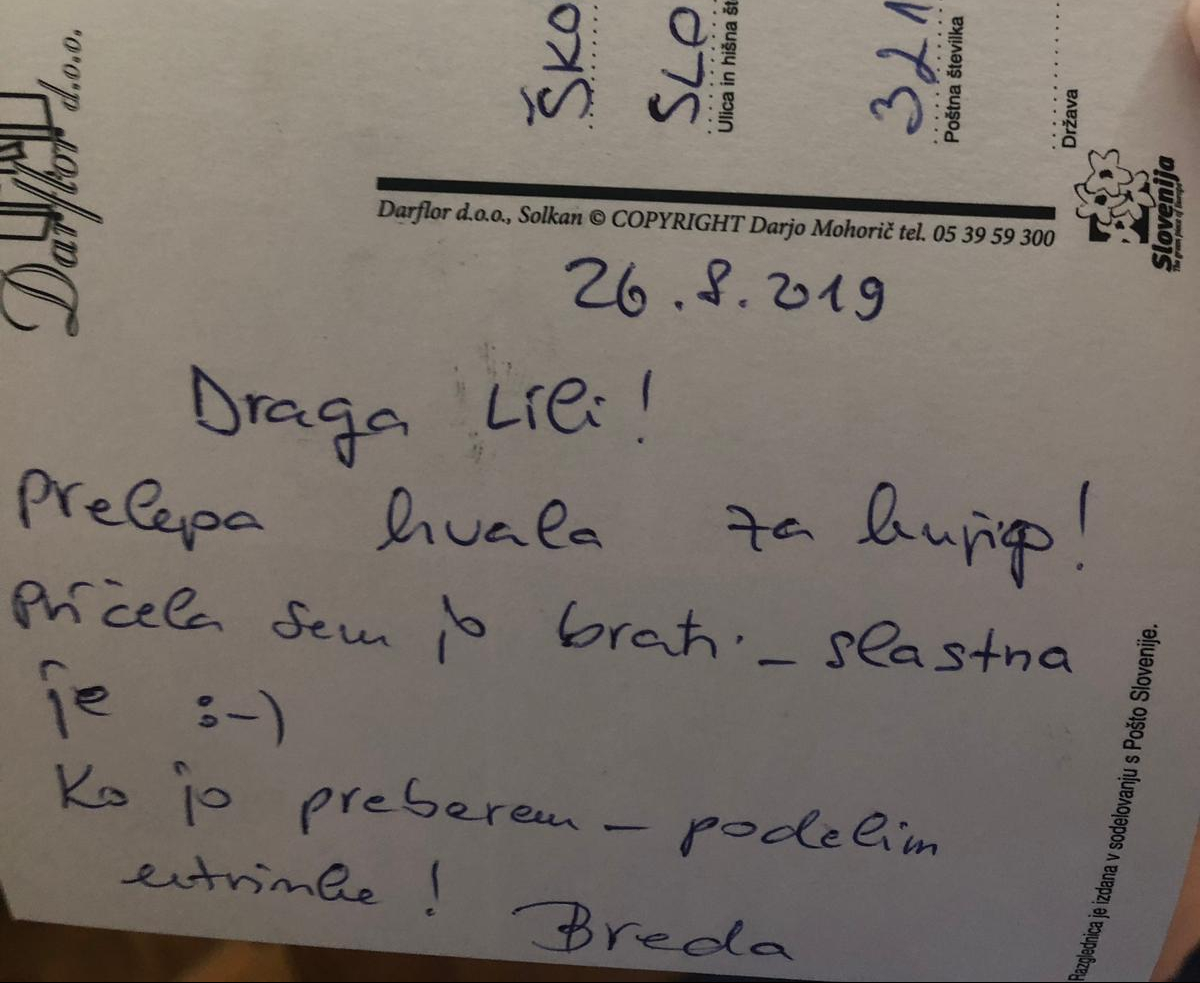 Darflor d.o.o.
ŠKO
SLO
Ulica in hišna št
321
Poštna številka
Država
Slovenija
Darflor d.o.o., Solkan © COPYRIGHT Darjo Mohorič tel. 05 39 59 300
26.8.2019
Draga Lili!
Prelepa hvala za knjigo!
Pričela sem jo brati - slastna
je :-)
Ko jo preberem - podelim
utrinke!
Breda
Razglednica je izdana v sodelovanju s Pošto Slovenije.